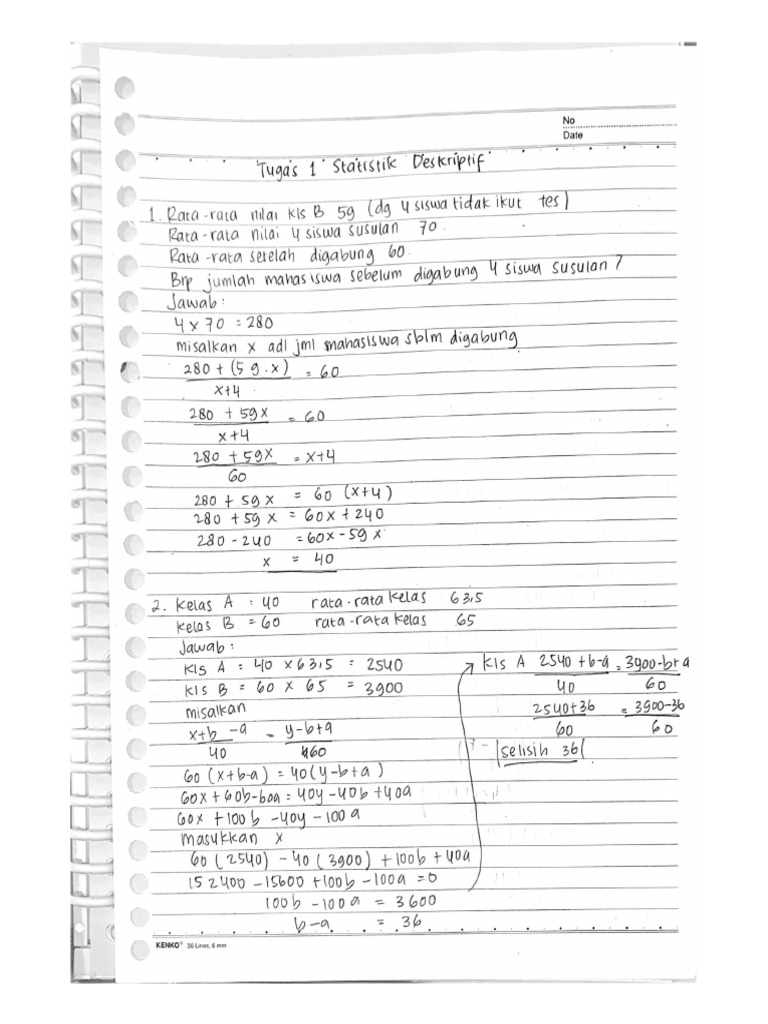 No
Date
Tugas 1 Statistik Deskriptif
1. Rata-rata nilai kls B 59 (dg 4 siswa tidak ikut tes)
Rata-rata nilai 4 siswa susulan 70
Rata-rata setelah digabung 60
Brp jumlah mahasiswa sebelum digabung 4 siswa susulan?
Jawab:
4 x 70 = 280
misalkan x adl jml mahasiswa sblm digabung
280 + (59.x) = 60
x+4
280 + 59x = 60
x+4
280 + 59x = x+4
60
280 + 59x = 60 (x+4)
280 + 59x = 60x + 240
280 - 240 = 60x - 59x
x = 40
2. Kelas A = 40 rata-rata kelas 63,5
Kelas B = 60 rata-rata kelas 65
Jawab:
Kls A = 40 x 63,5 = 2540
Kls B = 60 x 65 = 3900
misalkan
x+b-a = y-b+a
40 60
60 (x+b-a) = 40 (y-b+a)
60x + 60b - 60a = 40y - 40b + 40a
60x + 100b - 40y - 100a
Masukkan x
60 (2540) - 40 (3900) + 100b + 40a
152400 - 15600 + 100b - 100a = 0
100b - 100a = 3600
b-a = 36
Kls A 2540 + b-a = 3900-b+a
40 60
2540+36 = 3900-36
60 60
selisih 36
KENKO® 36 Lines, 6 mm